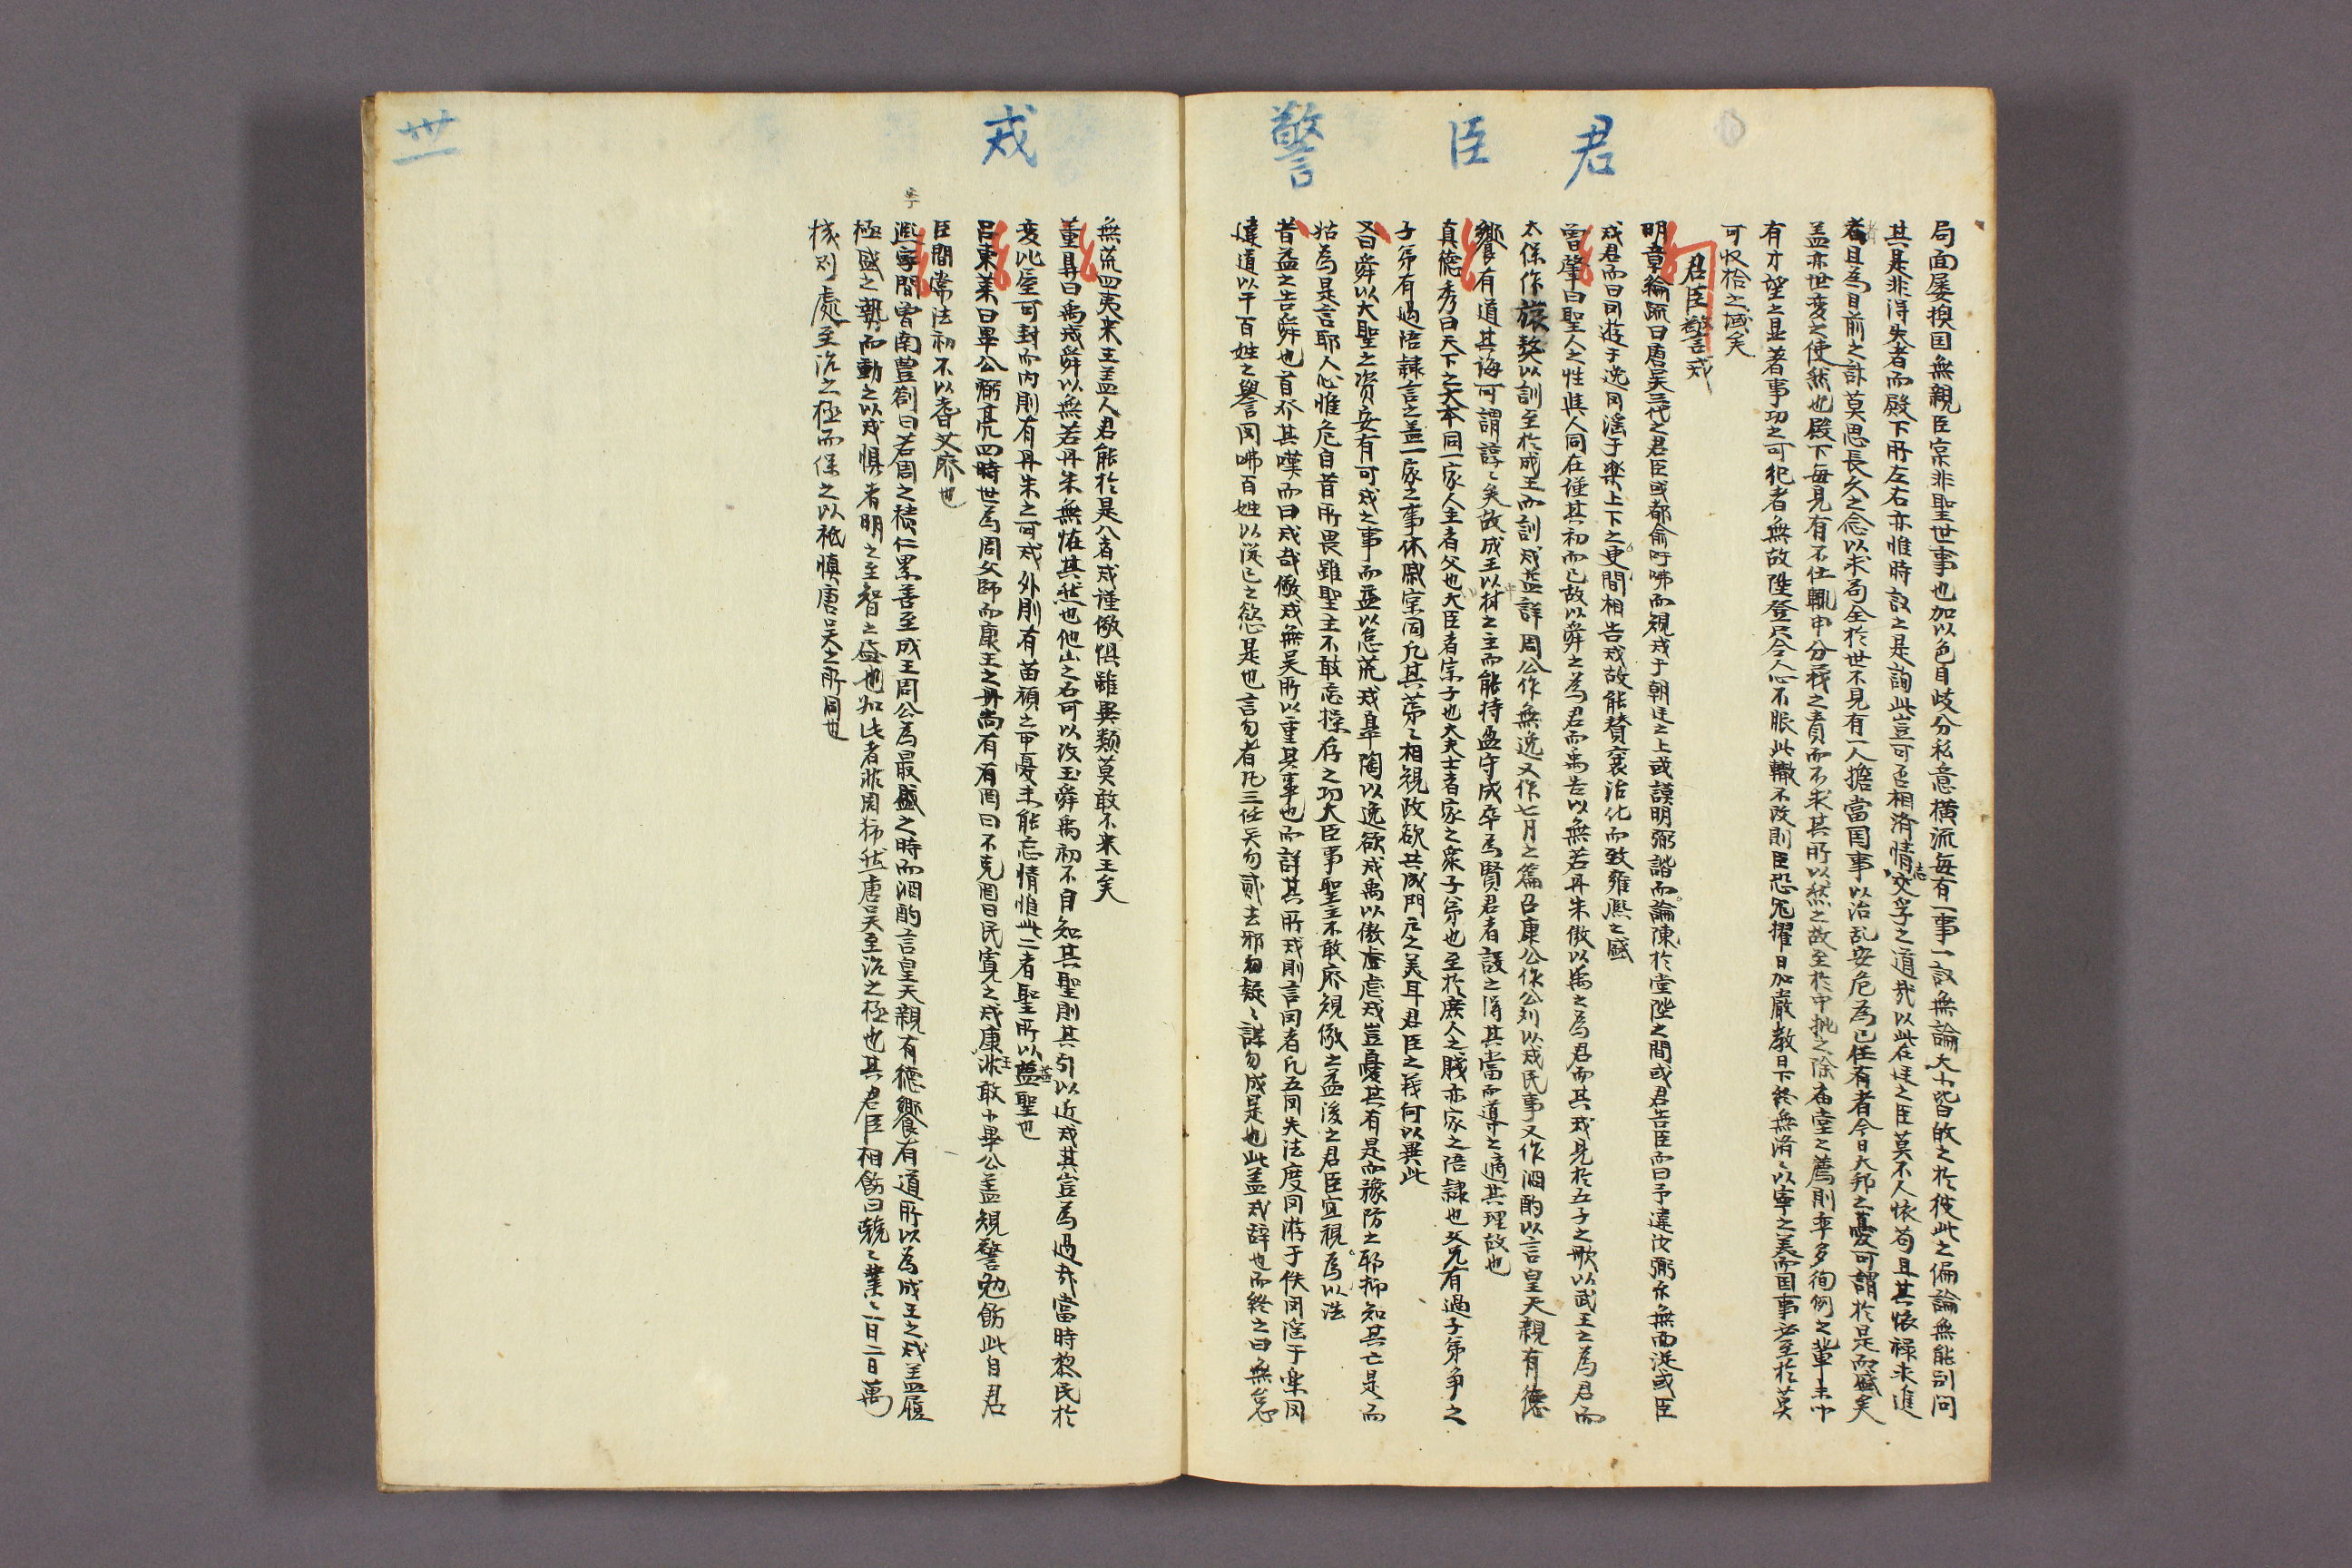 君臣警戒
卅
局面屡換国無親臣宗非聖世事也加以色目岐分私意橫流每有一事一議無論大小皆故之於彼此之偏論無能剖问
其是非得失者而殿下所左右亦惟時議之是詢此豈可否相濟情志交孚之道哉以此在廷之臣莫不人懐苟且其懐禄求進
者且為目前之計莫思長久之念以求苟全於世不見有一人擔當国事以治乱安危為己任有者今日大邦之憂可謂於是而盛矣
盖亦世変之使然也殿下每見有不仕輒申分義之責而不求其所以然之故至於中批之除庙堂之薦則率多徇例之輩未中
有才望之显著事功之可紀者無故陞登只令人心不服此轍不改則臣恐冤擢日加嚴教日下終無済々以寧之美而国事必至於莫
可収拾之域矣
君臣警戒
明章綸疏曰唐吴三代之君臣或都俞吁咈而規戒于朝廷之上或謨明弼諧而論陳於堂陛之間或君告臣而曰予違汝弼尔無面從或臣
戒君而曰罔遊于逸罔滛于楽上下之更間相告戒故能賛襄治化而致雍熙之盛
曾肇曰聖人之性與人同在謹其初而已故以舜之為君而禹告以無若丹朱傲以禹之為君而其戒見於五子之歌以武王之為君而
太保作旅獒以訓至於成王而訓戒益詳周公作無逸又作七月之篇召康公作公刘以戒民事又作泂酌以言皇天親有德
饗有道其誨可謂諄々矣故成王以中材之主而能持盈守成卒為賢君者護之得其當而導之適其理故也
真德秀曰天下之大本同一家人主者父也大臣者宗子也大夫士者家之衆子弟也至於庶人之賎亦家之陪隷也父兄有過子弟争之
子弟有過陪隷言之盖一家之事休戚宗同凡其第々相規政欲共成門户之美耳君臣之義何以異此
又曰舜以大聖之資安有可戒之事而益以怠荒戒皐陶以逸欲戒禹以傲虐戒豈憂其有是而豫防之耶抑知其亡是而
姑為是言耶人心惟危自昔所畏雖聖主不敢忘操存之功大臣事聖主不敢廃規儆之益後之君臣宜視為以法
昔益之告舜也首介其嘆而曰戒哉儆戒無吴所以重其事也而詳其所戒則言罔者凡五罔失法度罔游于佚罔滛于楽罔
違道以干百姓之譽言罔咈百姓以從己之慾是也言勿者凡三任矣勿貳去邪勿疑々謀勿成是也此盖戒辞也而終之曰無怠
無荒四夷来王盖人君能於是八者戒謹儆惧雖異類莫敢不来王矣
董鼎曰禹戒舜以無若丹朱無怪其然也他山之石可以攻玉舜禹初不自知其聖則其引以近戒其豈為過哉當時黎民於
変比屋可封而内則有丹朱之可戒外則有苗頑之可憂未能忘情惟此二者聖所以益聖也
呂東莱曰畢公弼亮四時世為周父師而康王之册尚有有罔曰不克罔曰民寡之戒康王非敢少畢公盖規警勉飭此自君
臣間常法初不以耆艾廃也
凞寧間曾南豊劄曰若周之積仁累善至成王周公為最盛之時而泂酌言皇天親有德饗有道所以為成王之戒盖履
極盛之勢而動之以戒惧者明之至智之盛也如此者非周然唐吴至治之極也其君臣相飭曰兢々業々一日二日萬
機則處至治之極而保之以祗慎唐吴之所同也